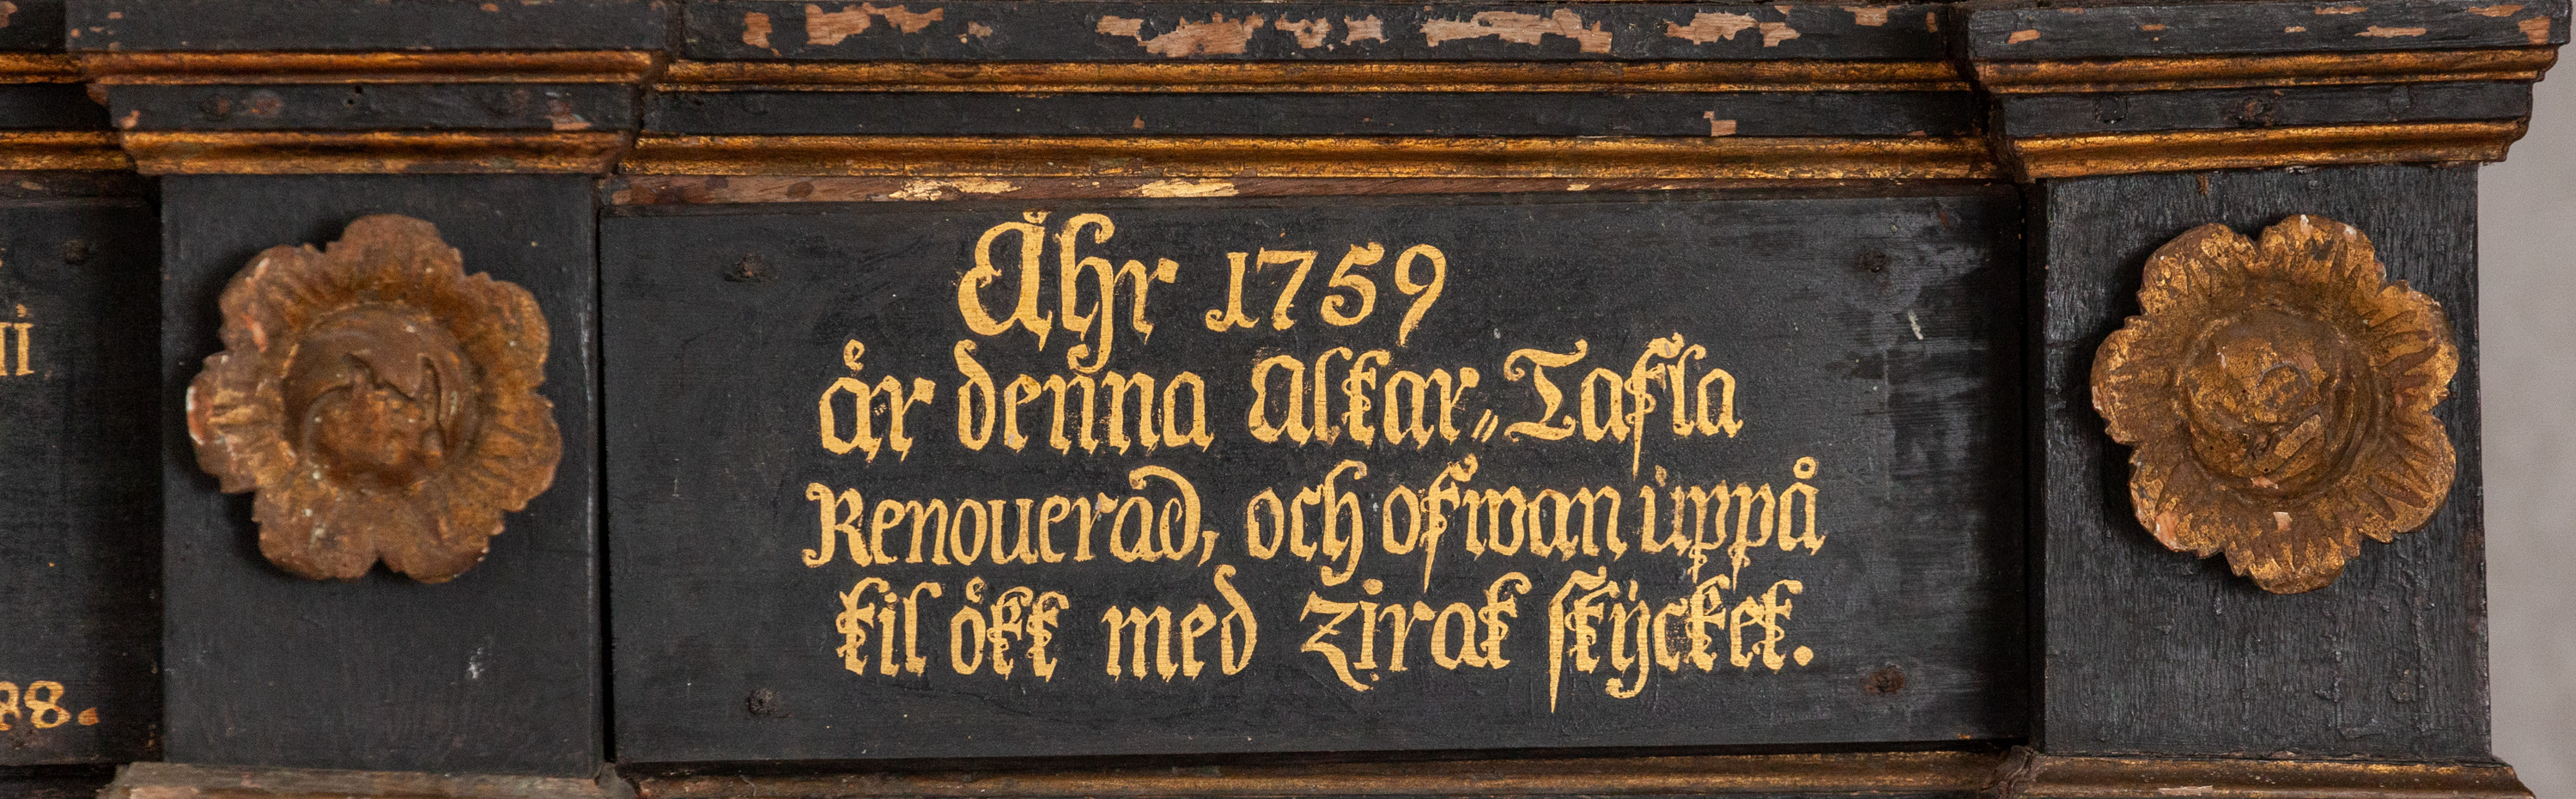 Åhr 1759
år denna Altar„Tafla
Renouerad, och ofwan uppå
til økt med Zirat stÿcket.
88.